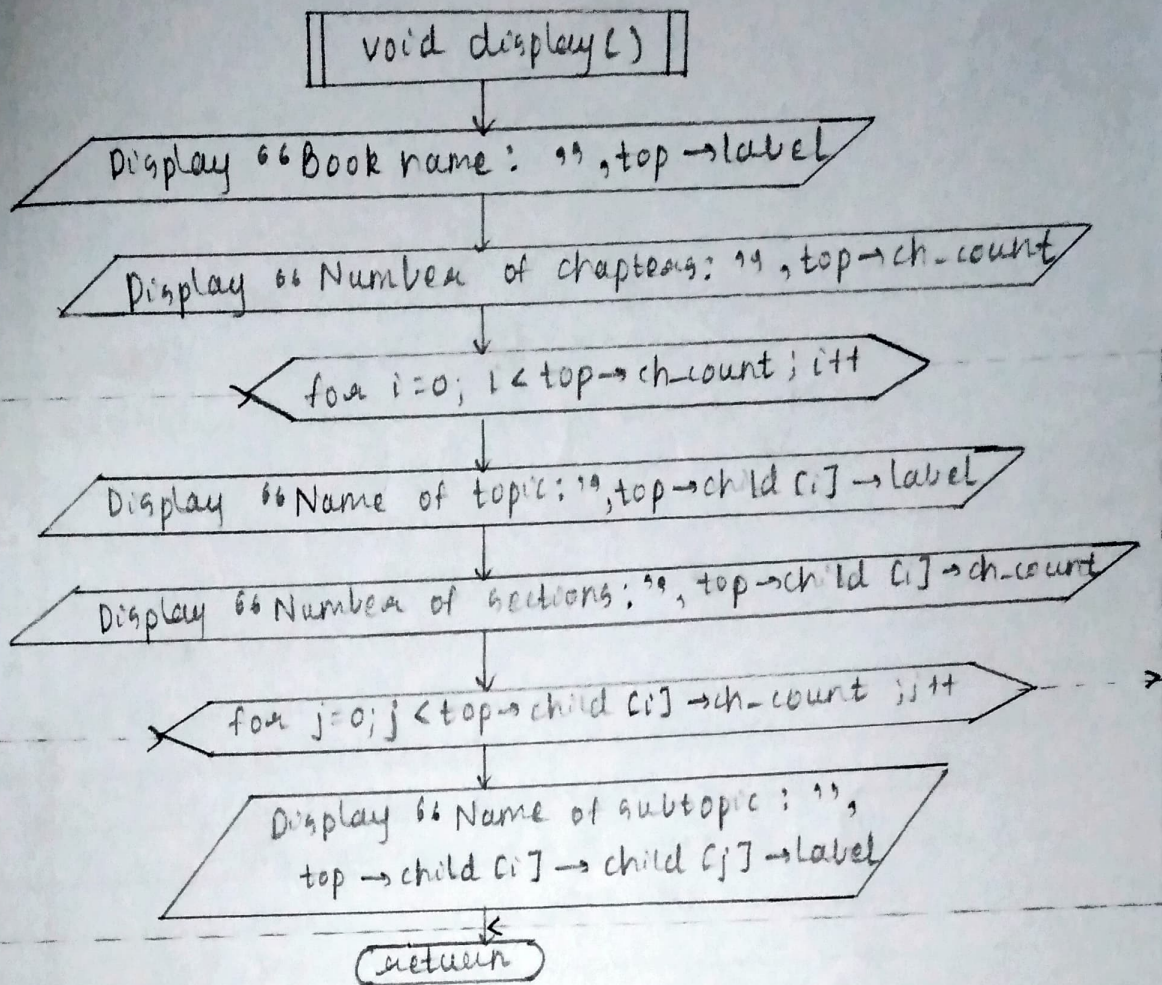 void display()
Display “Book name: ”, top→label
Display “Number of chapters: ”, top→ch_count
for i=0; i < top→ch_count; i++
Display “Name of topic:”, top→child [i] → label
Display “Number of sections:”, top→child [i] → ch_count
for j=0; j < top→child [i] → ch_count ; j++
Display “Name of subtopic : ”,
top → child [i] → child [j] → label
return